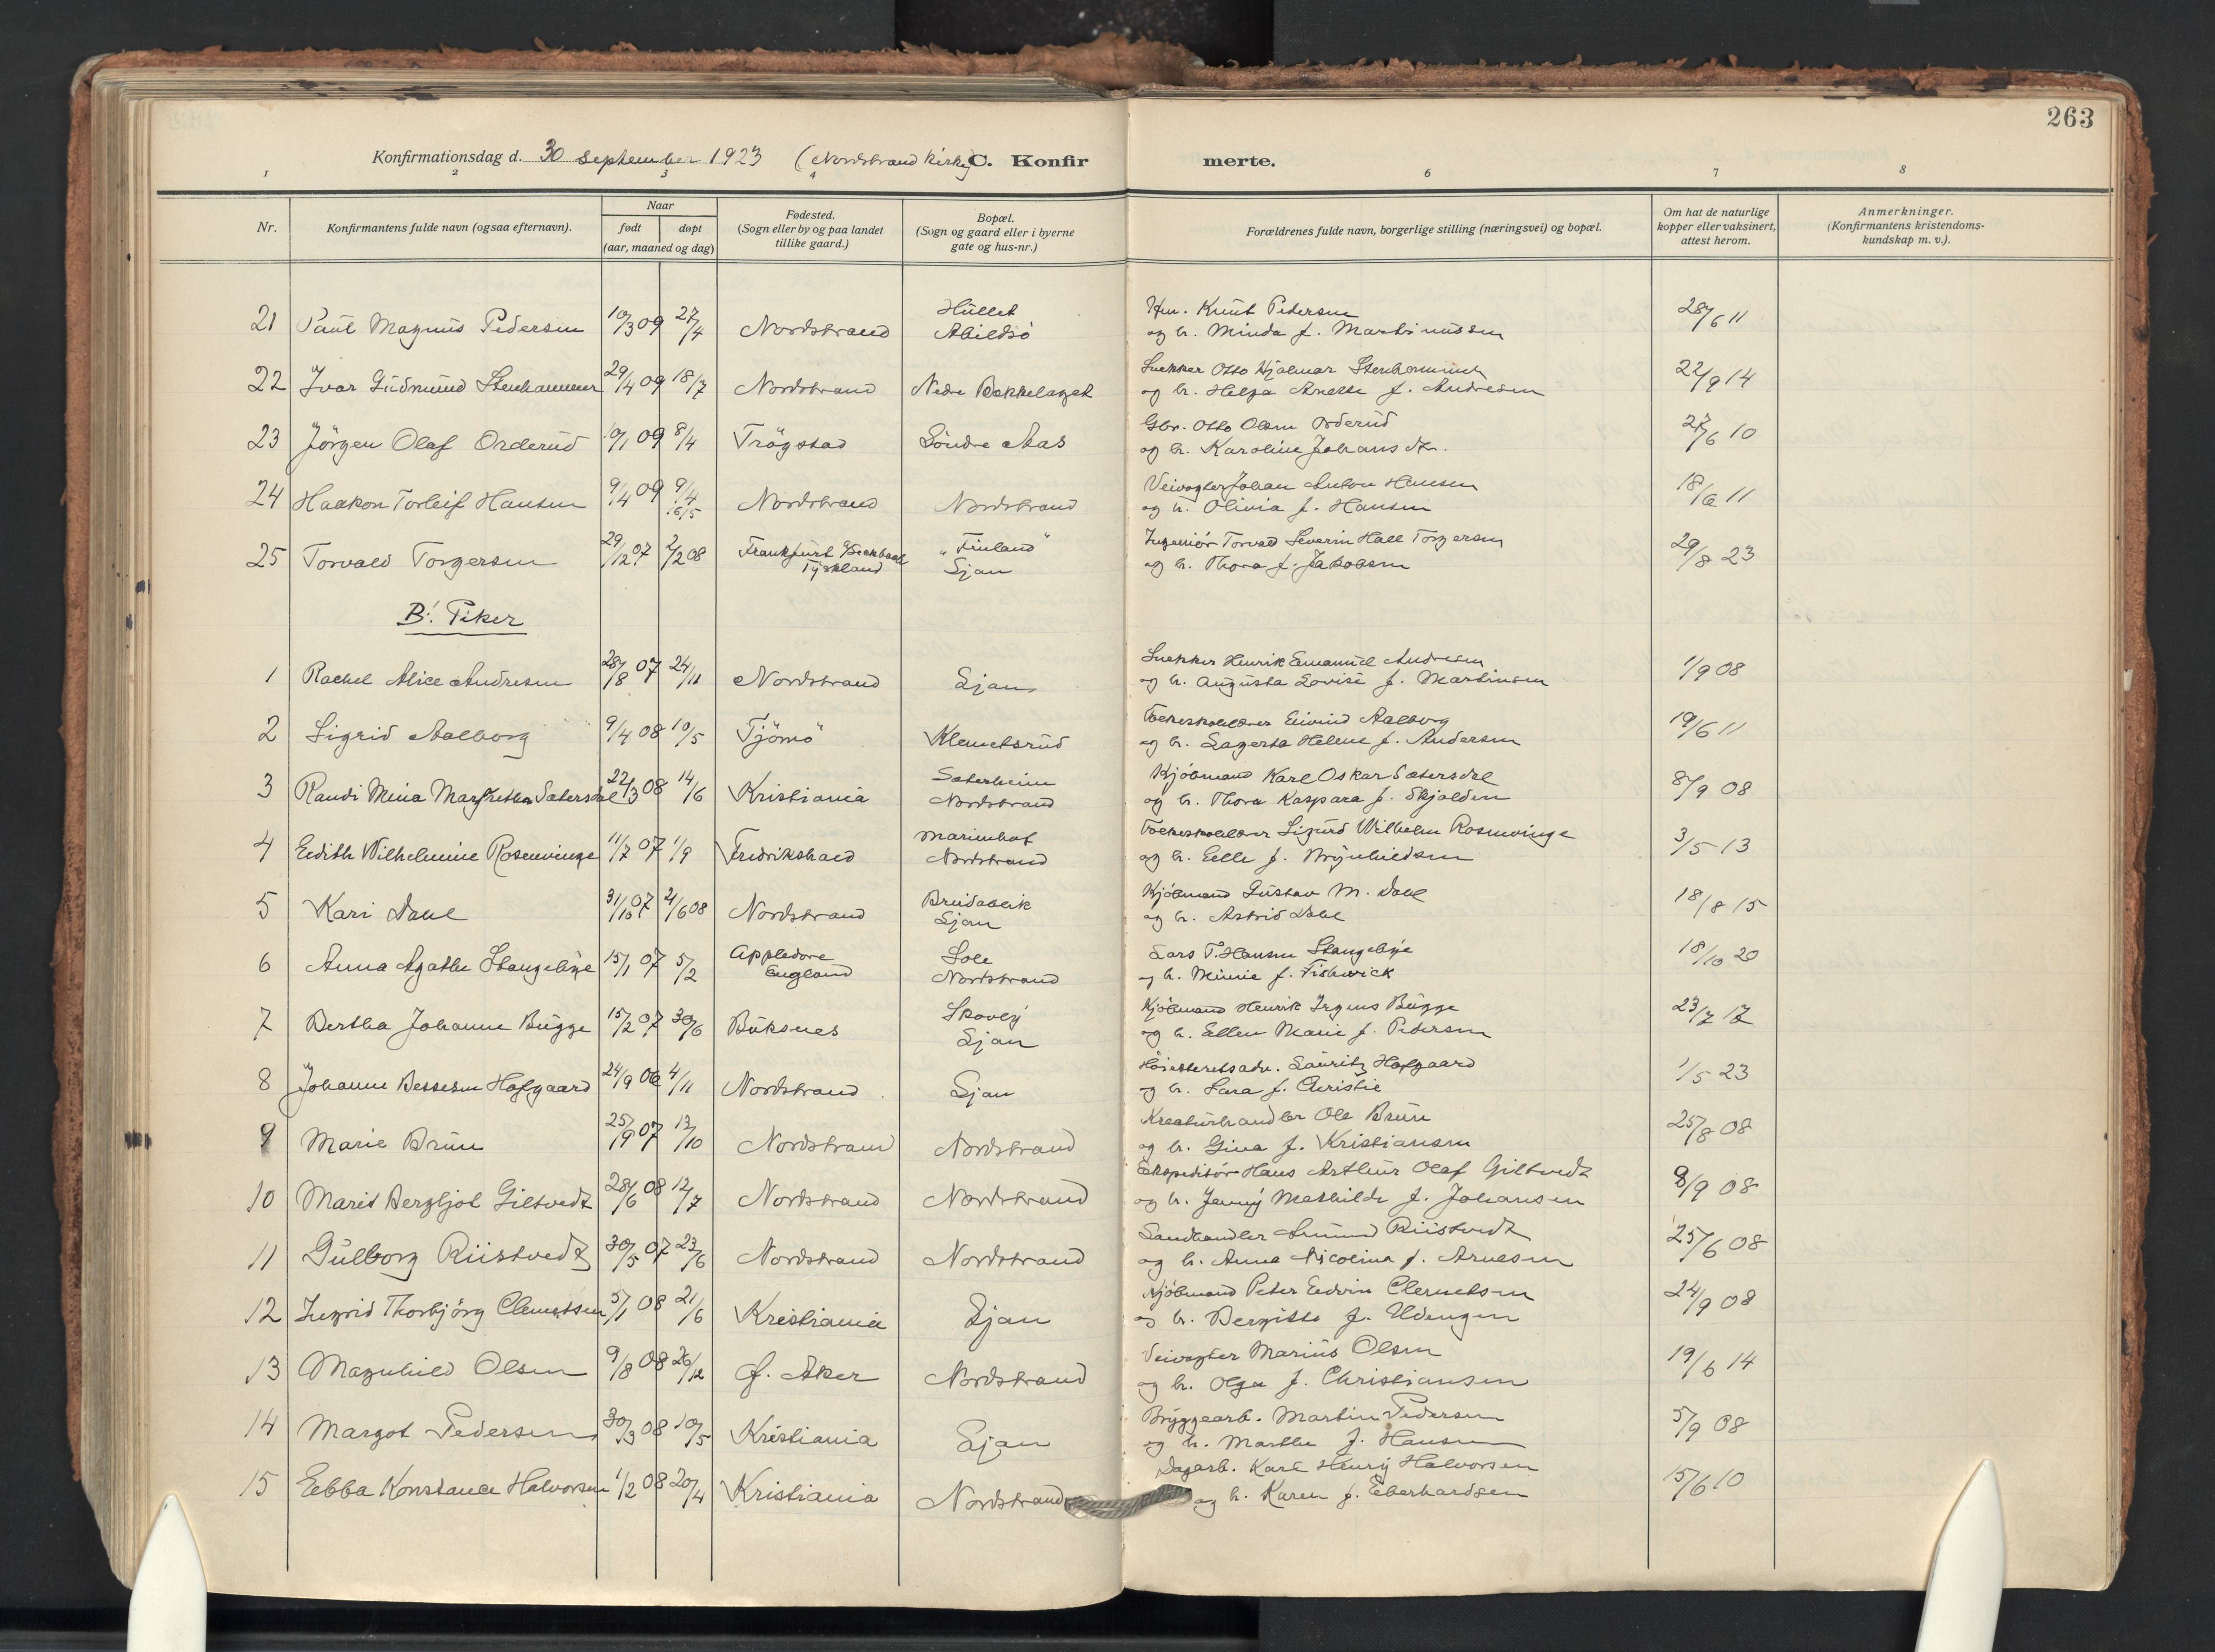 263
Konfirmationsdag d. 30 september 1923 (Nordstrand kirke) C. Konfirmerte.
1 2 3 4 6 7 8
Nr. Konfirmantens fulde navn (ogsaa efternavn). Naar født døpt (aar, maaned og dag) Fødested. (Sogn eller by og paa landet tillike gaard.) Bopæl. (Sogn og gaard eller i byerne gate og hus-nr.) Forældrenes fulde navn, borgerlige stilling (næringsvei) og bopæl. Om hat de naturlige kopper eller vaksinert, attest herom. Anmerkninger. (Konfirmantens kristendomskundskap m. v.).
21 Paul Magnus Pedersen 10/3 09 27/4 Nordstrand Hullet Abildsö Knut Pedersen og h. Minda f. Martinussen 28/6 11
22 Ivar Gudmund Stenhammer 29/4 09 18/7 Nordstrand Nedre Bekkelaget Snekker Otto Hjalmar Stenhammer og h. Helga Anette f. Andresen 22/9 14
23 Jörgen Olaf Orderud 10/1 09 8/4 Trögstad Söndre Aas Gbr. Otto Olsen Orderud og h. Karoline Johansdtr. 27/6 10
24 Haakon Torleif Hansen 9/4 09 9/4 16/5 Nordstrand Nordstrand Veivogter Johan Anton Hansen og h. Olivia f. Hansen 18/6 11
25 Torvald Torgersen 29/12 07 2/2 08 Frankfurt Seckbach Tyskland "Finland" Ljan Ingeniör Torvald Severin Hall Torgersen og h. Thora f. Jakobsen 29/8 23
B. Piker
1 Rachel Alice Andresen 28/8 07 24/11 Nordstrand Ljan Snekker Henrik Emanuel Andresen og h. Augusta Lovise f. Martinsen 1/9 08
2 Sigrid Aalborg 9/4 08 10/5 Tjömö Klemetsrud Folkeskolelærer Eivind Aalborg og h. Lagerta Helene f. Andersen 19/6 11
3 Randi Mina Margrethe Sætersdal 22/3 08 14/6 Kristiania Sæterheim Nordstrand Kjöbmand Karl Oskar Sætersdal og h. Thora Kaspara f. Skjolden 8/9 08
4 Edith Wilhelmine Rosenvinge 11/7 07 1/9 Fredrikshald Marienhof Nordstrand Folkeskolelærer Sigurd Wilhelm Rosenvinge og h. Elle f. Brynhildsen 3/5 13
5 Kari Dahl 31/10 07 21/6 08 Nordstrand Breidablik Ljan Kjöbmand Gustav M. Dahl og h. Astrid Dahl 18/8 15
6 Anna Agathe Stangebye 15/1 07 5/2 Appledore England Sole Nordstrand Lars T. Hansen Stangebye og h. Minnie f. Fishwick 18/10 20
7 Bertha Johanne Bugge 15/2 07 30/6 Buksnes Skovly Ljan Kjöbmand Henrik Irgens Bugge og h. Ellen Marie f. Pedersen 23/7 17
8 Johanne Bessesen Hofgaard 24/9 06 4/11 Nordstrand Ljan Höiesteretsadv. Lauritz Hofgaard og h. Sara f. Christie 1/5 23
9 Marie Brun 25/9 07 13/10 Nordstrand Nordstrand Kreaturhandler Ole Brun og h. Gina f. Kristiansen 25/8 08
10 Marit Bergljot Giltvedt 28/6 08 12/7 Nordstrand Nordstrand Ekspeditör Hans Arthur Olaf Giltvedt og h. Jenny Mathilde f. Johansen 8/9 08
11 Gulborg Riistvedt 30/5 07 23/6 Nordstrand Nordstrand Landhandler Amund Riistvedt og h. Anna Nicolina f. Arnesen 25/6 08
12 Ingrid Thorbjörg Clemetsen 5/1 08 21/6 Kristiania Ljan Kjöbmand Peter Edvin Clemetsen og h. Bergitte f. Udengen 24/9 08
13 Magnhild Olsen 9/8 08 26/12 Ö. Aker Nordstrand Veivogter Marius Olsen og h. Olga f. Christiansen 19/6 14
14 Margot Pedersen 30/3 08 10/5 Kristiania Ljan Bryggearb. Martin Pedersen og h. Marthe f. Hansen 5/9 08
15 Ebba Konstance Halvorsen 1/2 08 20/4 Kristiania Nordstrand Dagarb. Karl Henry Halvorsen og h. Karen f. Eberhardsen 15/6 10